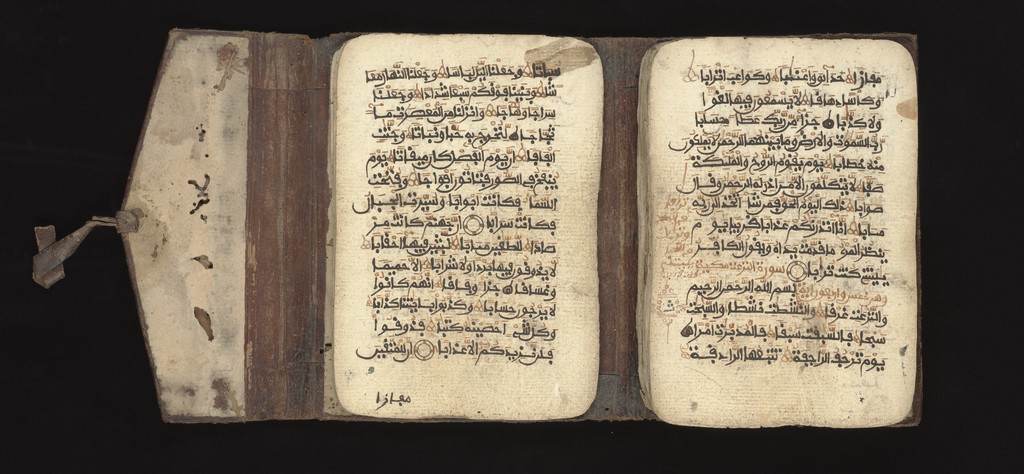 سباتا وجعلنا اليل لباسا وجعلنا النهار معا
شا وبنينا فوقكم سبعا شدادا وجعلنا
سراجا وهاجا وانزلنا من المعصرت ما
ثجاجا لنخرج به حبا ونباتا وجنت
الفافا ان يوم الفصل كان ميقاتا يوم
ينفخ في الصور فتاتون افواجا وفتحت
السما فكانت ابوابا وسيرت الجبال
فكانت سرابا ان جهنم كانت مر
صادا للطغين مابا لبثين فيها احقابا
لا يذوقون فيها بردا ولا شرابا الا حميما
وغساقا جزا وفاقا انهم كانوا
لا يرجون حسابا وكذبوا بايتنا كذابا
وكل شي احصينه كتبا فذوقوا
فلن نزيدكم الا عذابا ان للمتقين
مفازا
مفازا حدايق واعنبا وكواعب اترابا
وكاسا دهاقا لا يسمعون فيها لغوا
ولا كذابا جزا من ربك عطا حسابا
رب السموت والارض وما بينهما الرحمن لا يملكون
منه خطابا يوم يقوم الروح والمليكة
صفا لا يتكلمون الا من اذن له الرحمن وقال
صوابا ذلك اليوم الحق فمن شا اتخذ الى ربه
مابا انا انذرنكم عذابا قريبا يوم
ينظر المر ما قدمت يداه ويقول الكافر
يليتني كنت ترابا سورة النزعت مكية
وهي خمس واربعون اية بسم الله الرحمن الرحيم
والنزعت غرقا والنشطت نشطا والسبحت
سبحا فالسبقت سبقا فالمدبرت امرا
يوم ترجف الراجفة تتبعها الرادفة